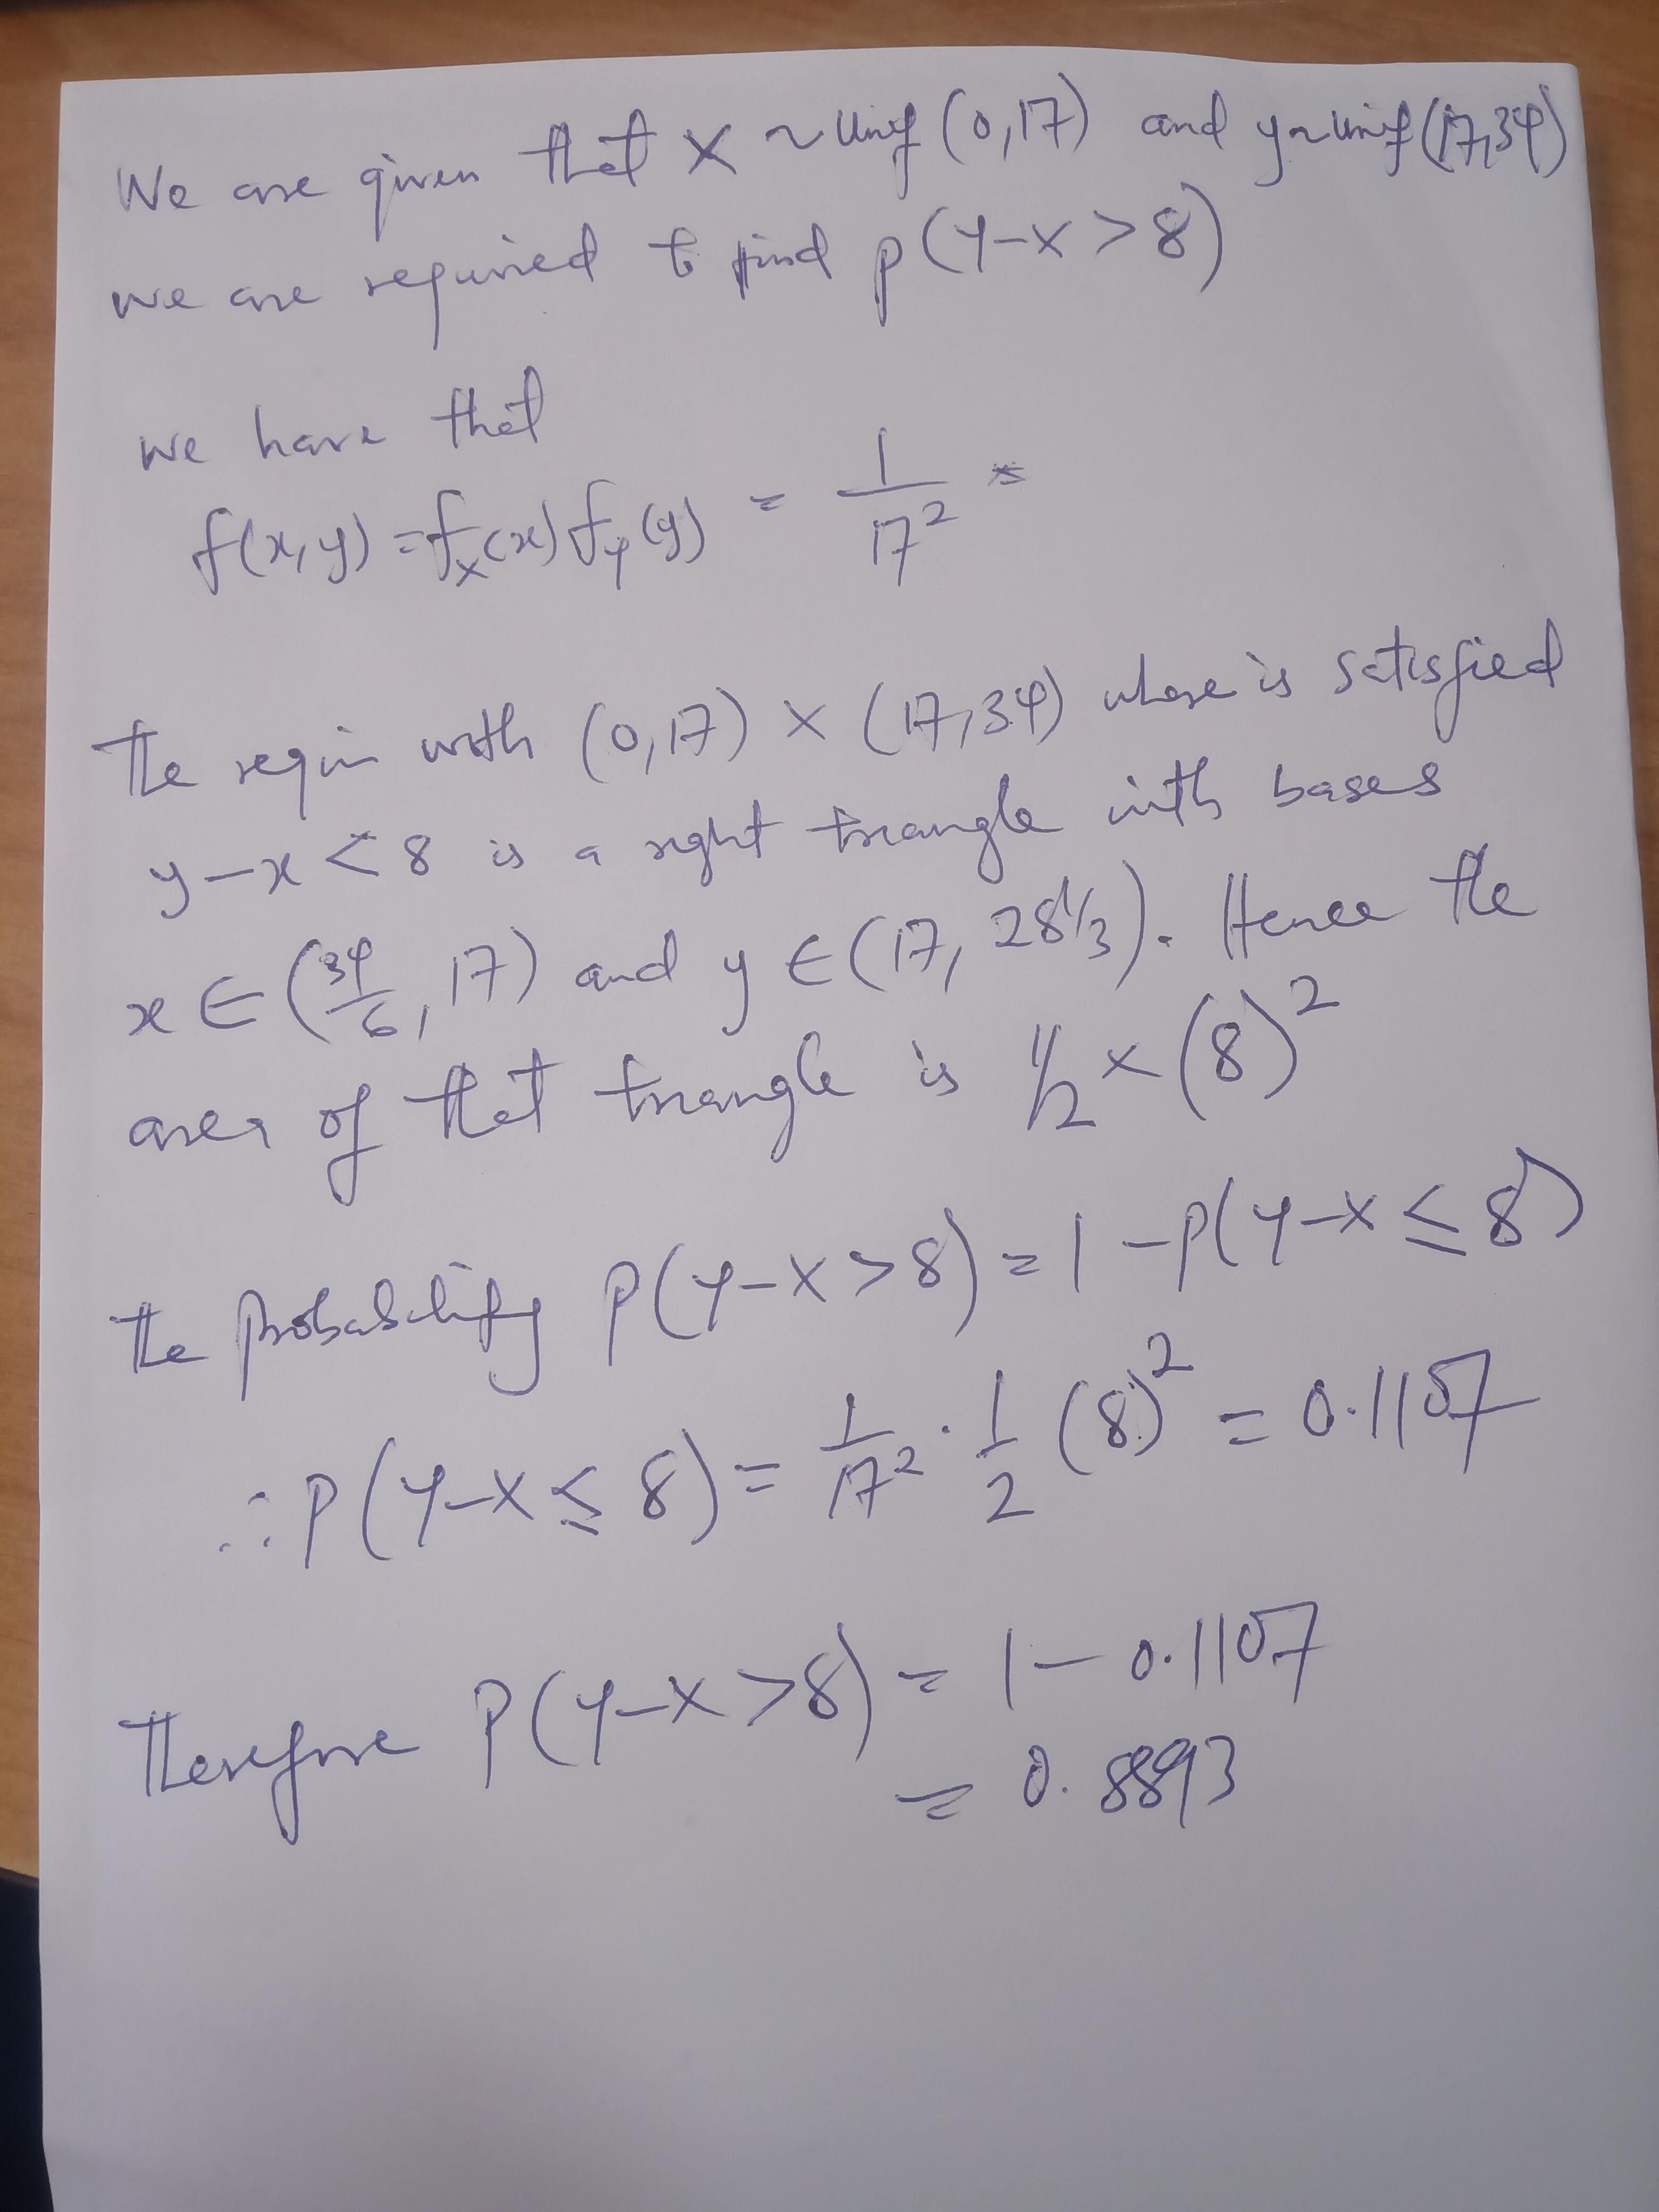 We are given that X ~ Unif (0,17) and y~Unif(17,34)
we are required to find p(Y-X>8)
we have that
f(x,y) = f_X(x) f_Y(y) = 1/17² =
The region with (0,17) × (17,34) where is satisfied
y-x < 8 is a right triangle with bases
x ∈ (34/6, 17) and y ∈ (17, 28 1/3). Hence the
area of that triangle is 1/2 × (8)²
the probability P(Y-X>8) = 1 - P(Y-X ≤ 8)
∴ P(Y-X ≤ 8) = 1/17² · 1/2 (8)² = 0.1107
Therefore P(Y-X>8) = 1 - 0.1107
= 0.8893